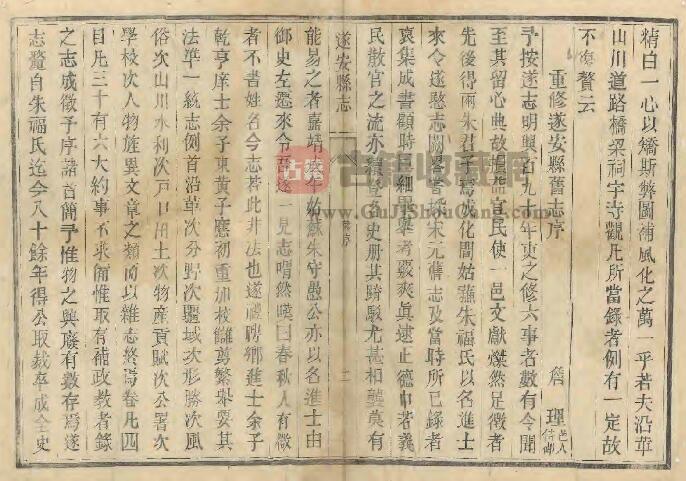 精白一心以矯斯弊圖補風化之萬一乎若夫沿革
山川道路橋梁祠宇寺觀凡所當錄者例有一定故
不復贅云
重修遂安縣舊志序
詹理邑人侍御
予按遂志明興百九十年吏之修六事者數有令聞
至其留心典故
官民使一邑文獻燦然足徵者
先後得兩朱君子焉成化間始
朱福氏以名進士
來令遂慜志闕畧
採宋元舊志及當時所已錄者
裒集成書顧時
細思
考
爽眞逮正德中若義
民散官之流亦
登名史册其
駁尤甚相襲莫有
遂安縣志
舊序
二
能易之者嘉靖
午姑蘇朱守愚公亦以名進士由
御史左遷來令吾遂一見志喟然嘆曰春秋人有微
者不書姓名今志若此非法也遂禮聘鄉進士余子
乾亨庠士余子東黃子應初重加校讎芟繁舉要其
法準一統志例首沿革次分野次疆域次形勝次風
俗次山川水利次戶口田土次物產貢賦次公署次
學校次人物旌異文章之類而以雜志終焉卷凡四
目凡三十有六大約事不求備惟取有補政教者錄
之志成徵予序諸首簡予惟物之興廢有數存焉遂
志蓋自朱福氏迄今八十餘年得公取裁存成全史
古籍
收藏网
www.GuJiShouCang.com